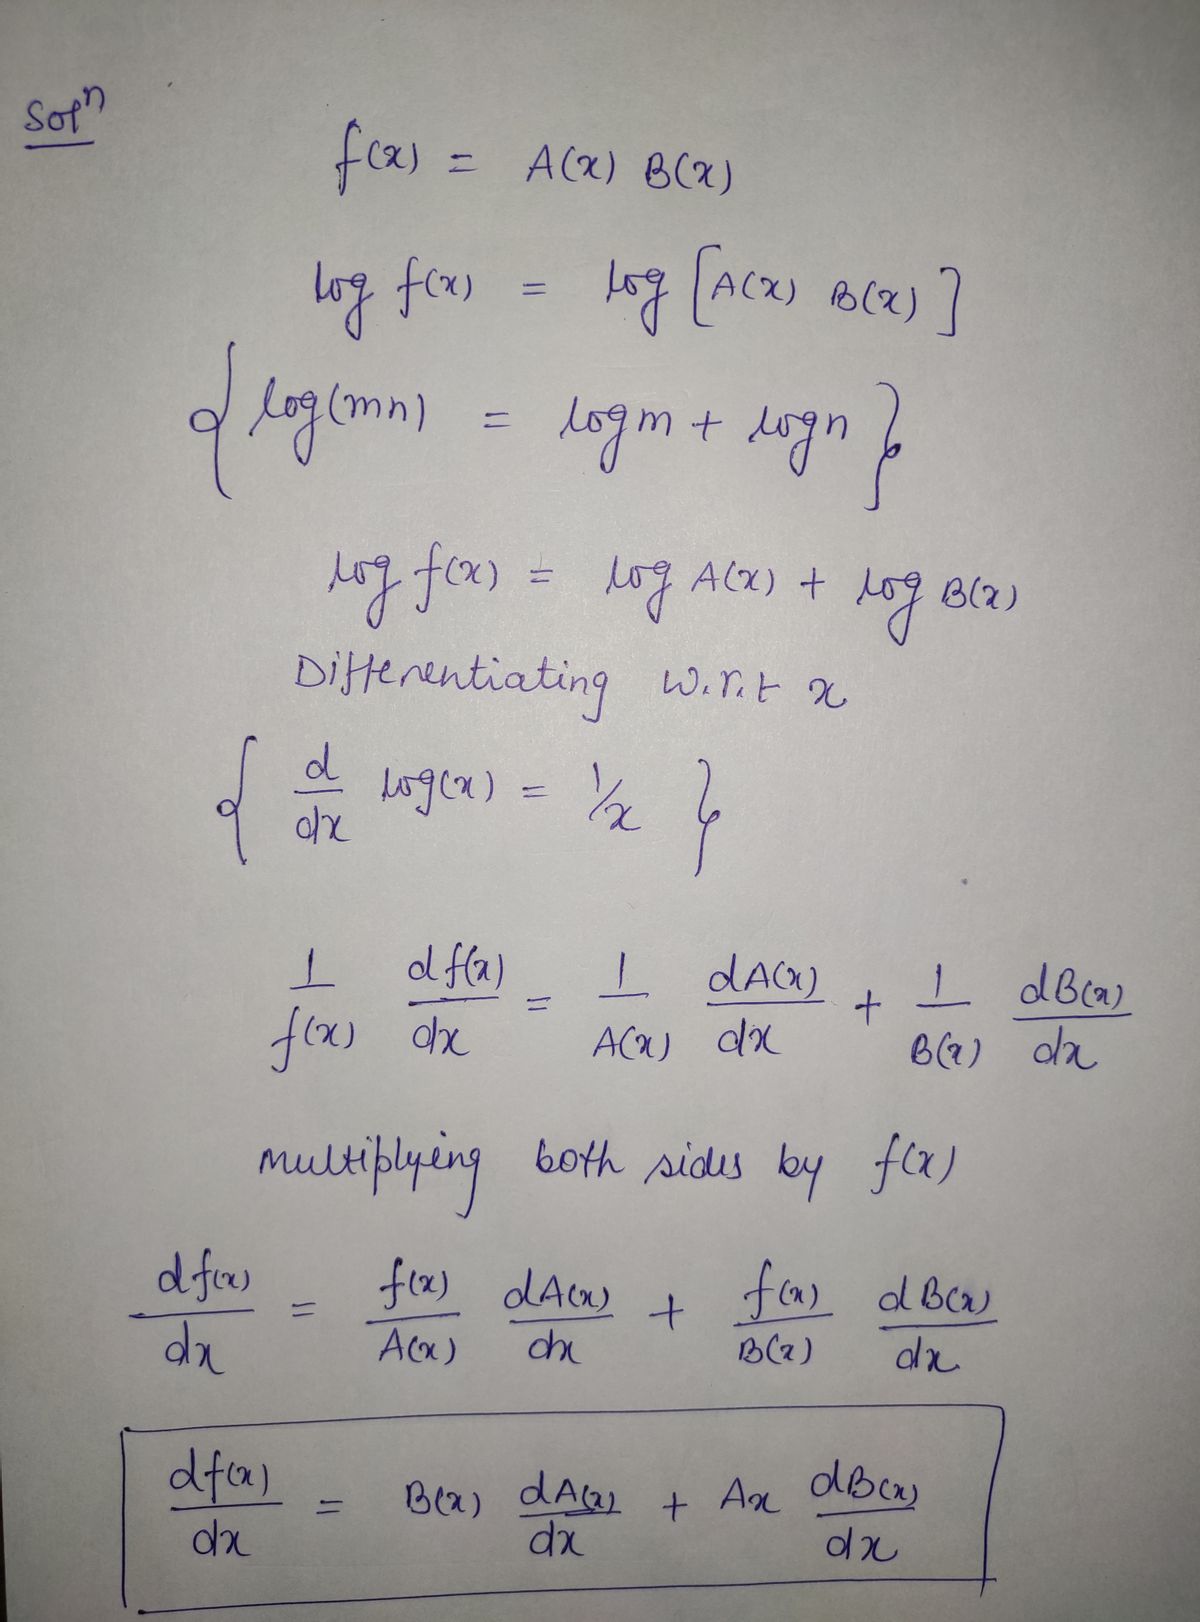 Solⁿ
f(x) = A(x) B(x)
log f(x) = log [A(x) B(x)]
{ log(mn) = log m + log n }
log f(x) = log A(x) + log B(x)
Differentiating w.r.t x
{ d/dx log(x) = 1/x }
1/f(x) df(x)/dx = 1/A(x) dA(x)/dx + 1/B(x) dB(x)/dx
multiplying both sides by f(x)
df(x)/dx = f(x)/A(x) dA(x)/dx + f(x)/B(x) dB(x)/dx
df(x)/dx = B(x) dA(x)/dx + Ax dB(x)/dx